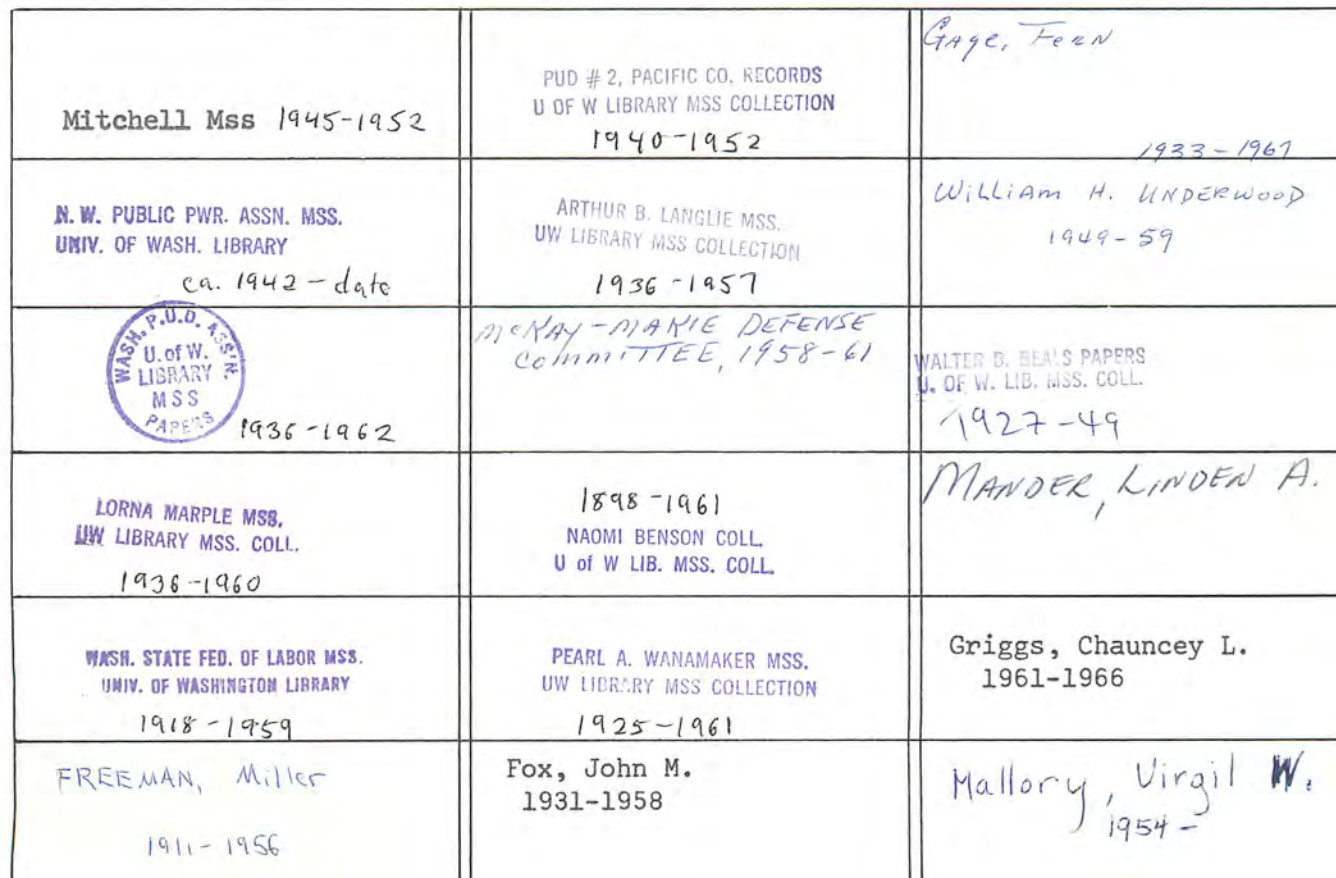 Mitchell Mss 1945-1952
PUD # 2, PACIFIC CO. RECORDS
U OF W LIBRARY MSS COLLECTION
1940-1952
Gage, Fern
1933-1967
N.W. PUBLIC PWR. ASSN. MSS.
UNIV. OF WASH. LIBRARY
ca. 1942 - date
ARTHUR B. LANGLIE MSS.
UW LIBRARY MSS COLLECTION
1936-1957
WILLIAM H. UNDERWOOD
1949-59
WASH. P.U.D. ASS'N.
U. of W.
LIBRARY
MSS
PAPERS
1936-1962
McKAY-MAKIE DEFENSE
COMMITTEE, 1958-61
WALTER B. BEALS PAPERS
U. OF W. LIB. MSS. COLL.
1927-49
LORNA MARPLE MSS.
UW LIBRARY MSS. COLL.
1936-1960
1898-1961
NAOMI BENSON COLL.
U of W LIB. MSS. COLL.
MANDER, LINDEN A.
WASH. STATE FED. OF LABOR MSS.
UNIV. OF WASHINGTON LIBRARY
1918-1959
PEARL A. WANAMAKER MSS.
UW LIBRARY MSS COLLECTION
1925-1961
Griggs, Chauncey L.
1961-1966
FREEMAN, Miller
1911-1956
Fox, John M.
1931-1958
Mallory, Virgil W.
1954-